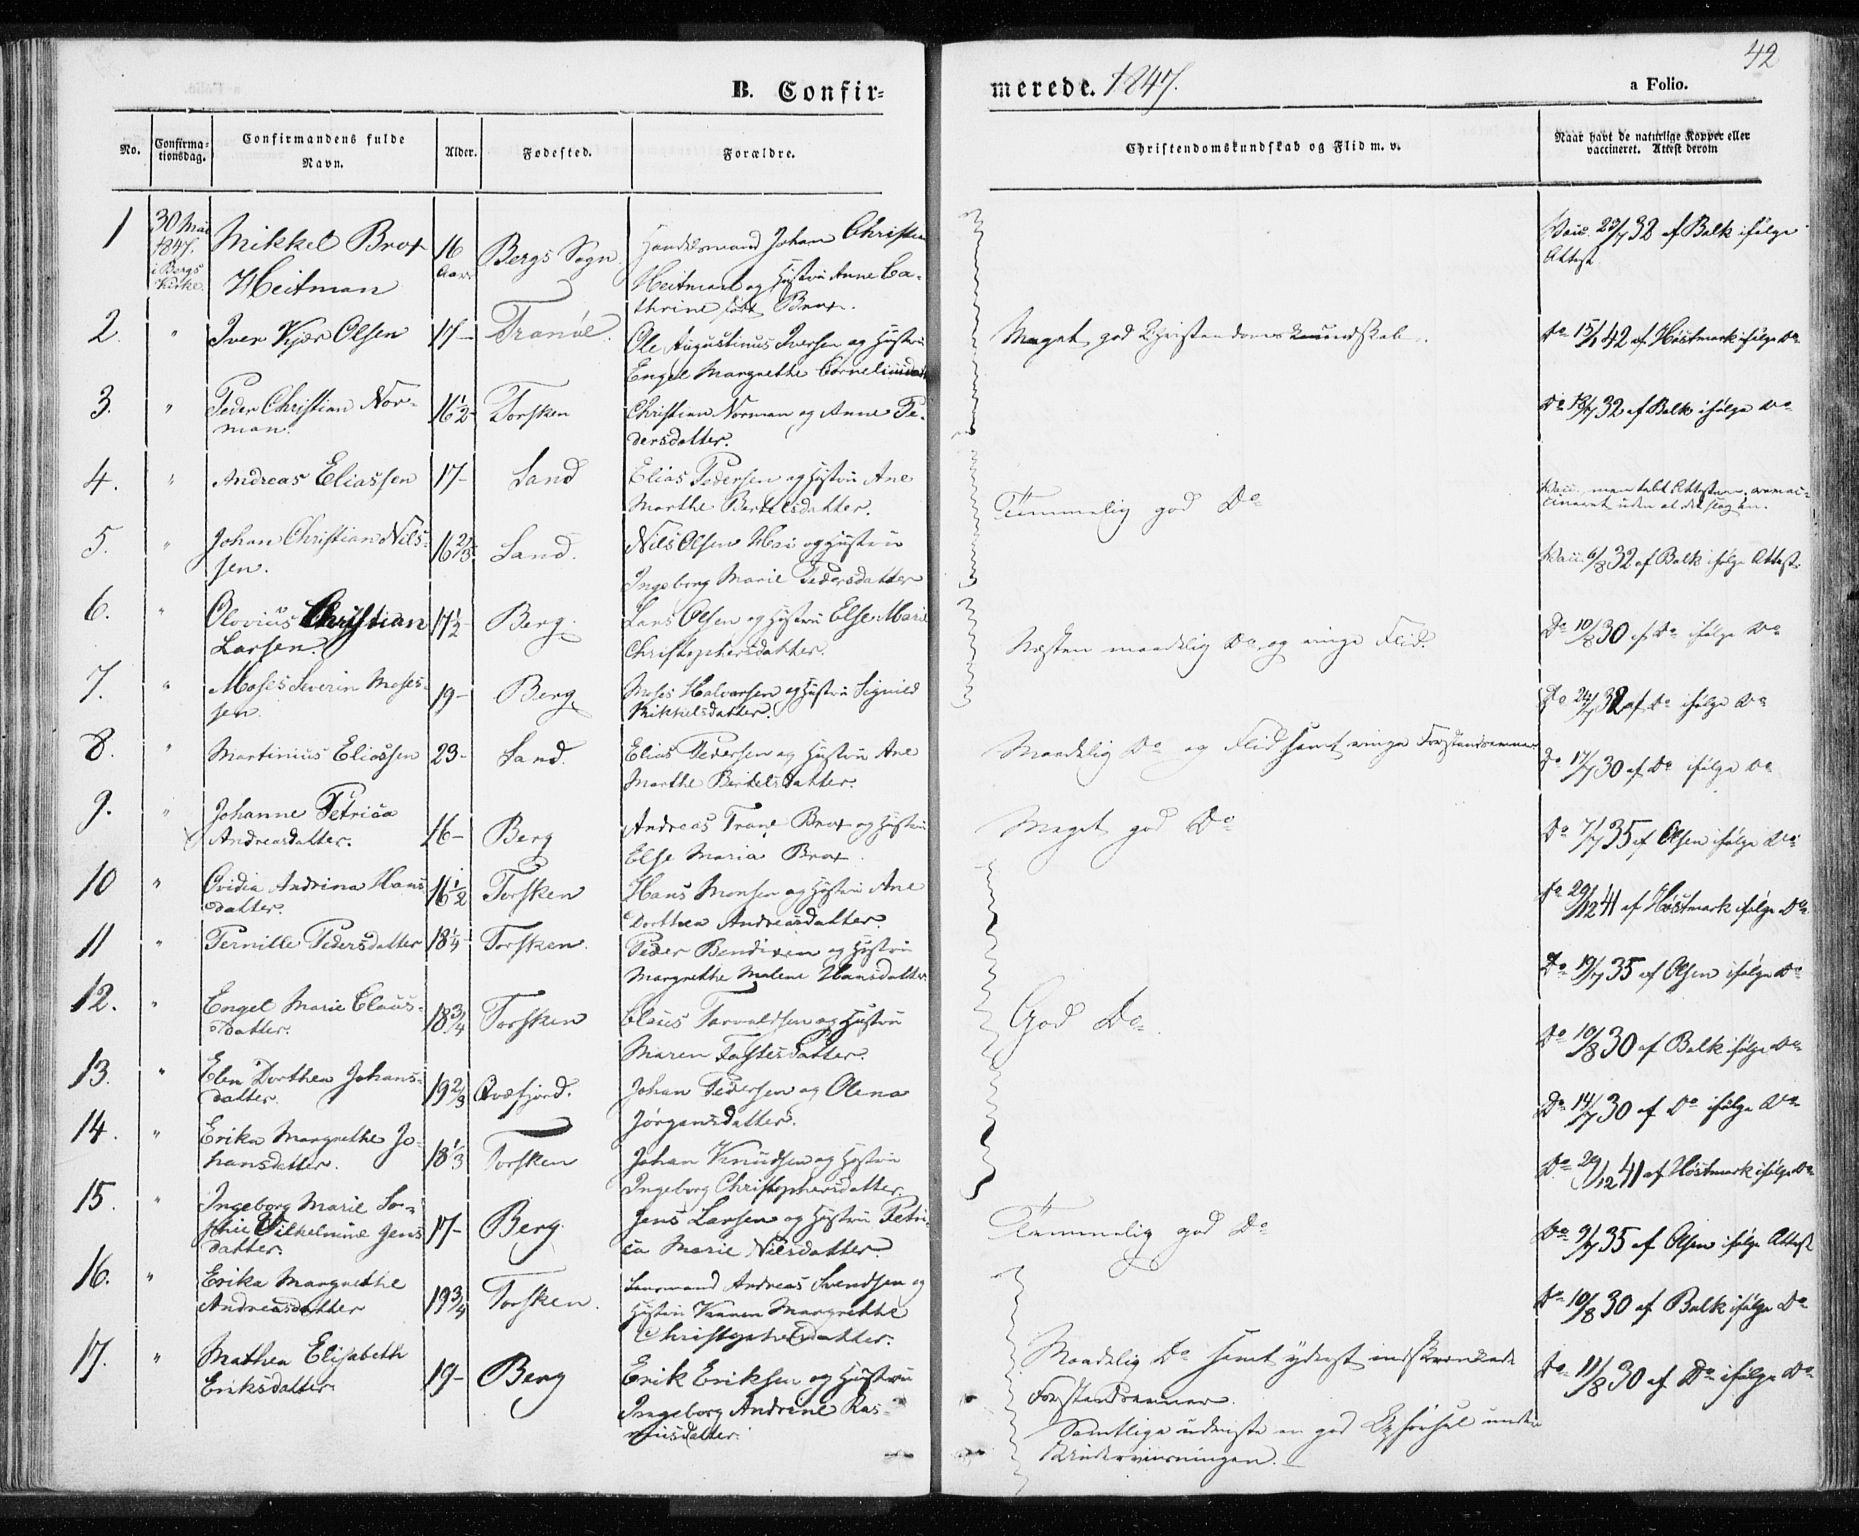 42
B. Confir-
merede. 1847.
a Folio.
No.
Confirma-
tionsdag.
Confirmandens fulde
Navn.
Alder.
Fødested.
Forældre.
Christendomskundskab og Flid m. v.
Naar havt de naturlige Kopper eller
vaccineret. Attest derom
1
30 Mai
1847.
i Bergs
Kirke.
Mikkel Brox
Heitman
16
Aar
Bergs Sogn
Handelsmand Johan Christian
Heitman og Hustru Anne Ca-
thrine født Brox.
Vacc. 20/7 32 af Balk ifølge
Attest
2. " Iver Kjær Olsen 17- Tranøe.
Ole Augustinus Iversen og Hustru
Engel Margrethe Corneliusdatt
Meget god Christendomskundskab.
Do 15/1 42 af Høstmark ifølge Do
3. " Peder Christian Nor-
man.
16 1/2 Torsken
Christian Norman og Anne Pe-
dersdatter.
Do 13/7 32 af Balk ifølge Do
4. " Andreas Eliassen 17- Sand
Elias Pedersen og Hustru Ane
Marthe Bertelsdatter.
Temmelig god Do
Vacc. men tabt Attesten, revac-
cineret uden at det slog an.
5. " Johan Christian Nils-
sen.
16 2/3 Sand.
Nils Olsen og Hustru
Ingeborg Marie Pedersdatter
Vacc. 6/8 32 af Balk ifølge Attest
6. " Olovius Christian
Larsen.
17 1/2 Berg.
Lars Olsen og Hustru Else Marie
Christophersdatter.
Næsten maadelig Do og ringe Flid.
Do 10/8 30 af Do ifølge Do
7. " Moses Severin Moses-
sen.
19- Berg
Moses Halvorsen og Hustru Signild
Mikkelsdatter.
Do 24/7 32 af Do ifølge Do
8. " Martinius Eliassen 23- Sand.
Elias Pedersen og Hustru Ane
Marthe Bertelsdatter.
Maadelig Do og Flid samt ringe Forstandsevner
Do 17/7 30 af Do ifølge Do
9. " Johanne Petrica
Andreasdatter.
16- Berg
Andreas Trane Brox og Hustru
Else Maria Brox.
Meget god Do
Do 7/7 35 af Olsen ifølge Do
10 " Ovidia Andrina Hans
datter.
16 1/2 Torsken
Hans Monsen og Hustru Ane
Dorthea Andreasdatter.
Do 29/12 41 af Høstmark ifølge Do
11 " Pernille Pedersdatter 18 1/4 Torsken.
Peder Bendixen og Hustru
Margrethe Malene Hansdatter.
Do 19/7 35 af Olsen ifølge Do
12. " Engel Marie Claus-
datter.
18 3/4 Torsken
Claus Torvaldsen og Hustru
Maren Tostesdatter.
God Do.
Do 10/8 30 af Balk ifølge Do
13. " Elen Dorthea Johans-
datter.
19 2/3 Qvæfjord.
Johan Pedersen og Olena
Jørgensdatter.
Do 14/7 30 af Do ifølge Do
14. " Erika Margrethe Jo-
hansdatter.
18 1/3 Torsken
Johan Knudsen og Hustru
Ingeborg Christophersdatter
Do 29/12 41 af Høstmark ifølge Do
15. " Ingeborg Marie So-
phie Vilhelmine Jens
datter.
17- Berg
Jens Larsen og Hustru Petri-
ca Marie Nilsdatter.
Temmelig god Do
Do 9/7 35 af Olsen ifølge Attest
16. " Erika Margrethe
Andreasdatter
19 3/4 Torsken.
Andreas Svendsen og
Hustru Karen Margrethe
Christophersdatter.
Do 10/8 30 af Balk ifølge Do
17. " Mathea Elisabeth
Eriksdatter.
19- Berg
Erik Eriksen og Hustru
Ingeborg Andrine Ras-
musdatter.
Maadelig Do samt yderst indskrænkede
Forstandsevner.
Samtlige udviste en god Opførsel under
Undervisningen.
Do 11/8 30 af Do ifølge Do